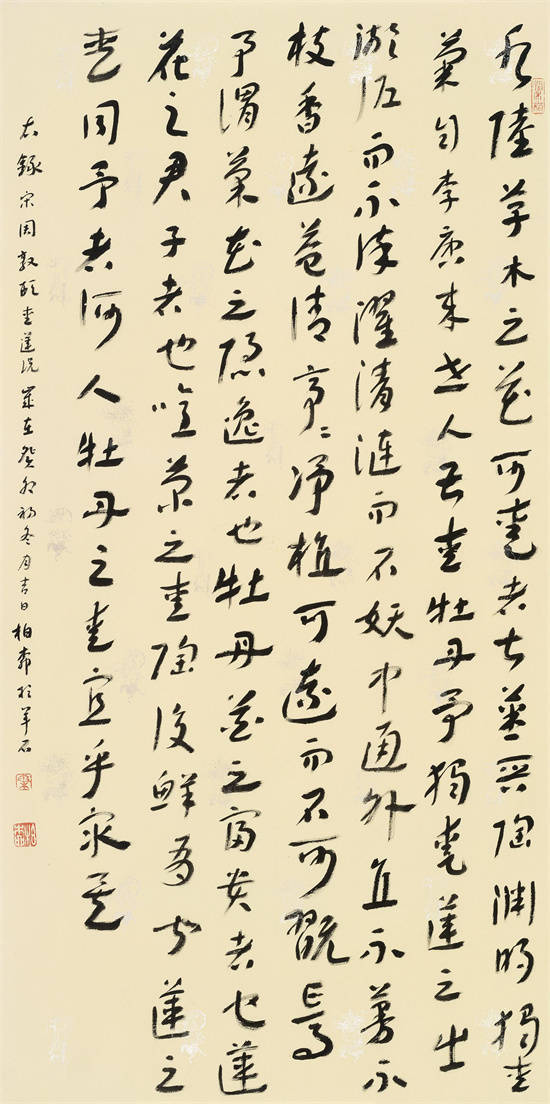 水陸草木之花可愛者甚蕃晉陶淵明獨愛
菊自李唐來世人甚愛牡丹予獨愛蓮之出
淤泥而不染濯清漣而不妖中通外直不蔓不
枝香遠益清亭〻淨植可遠而不可翫焉
予謂菊花之隱逸者也牡丹花之富貴者也蓮
花之君子者也噫菊之愛陶後鮮有聞蓮之
愛同予者何人牡丹之愛宜乎衆矣
右錄宋周敦頤愛蓮說歲在癸卯初冬月吉日柏於羊石